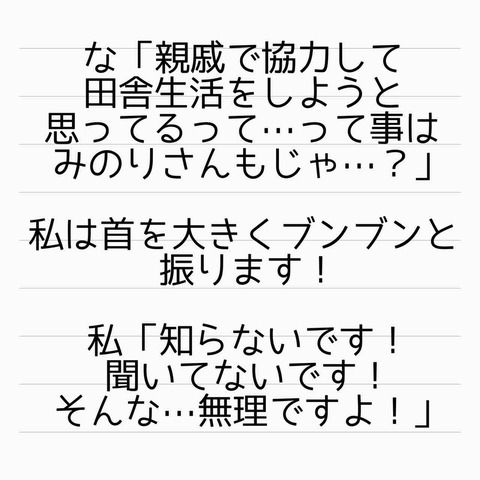 な「親戚で協力して
田舎生活をしようと
思ってるって…って事は
みのりさんもじゃ…？」
私は首を大きくブンブンと
振ります！
私「知らないです！
聞いてないです！
そんな…無理ですよ！」